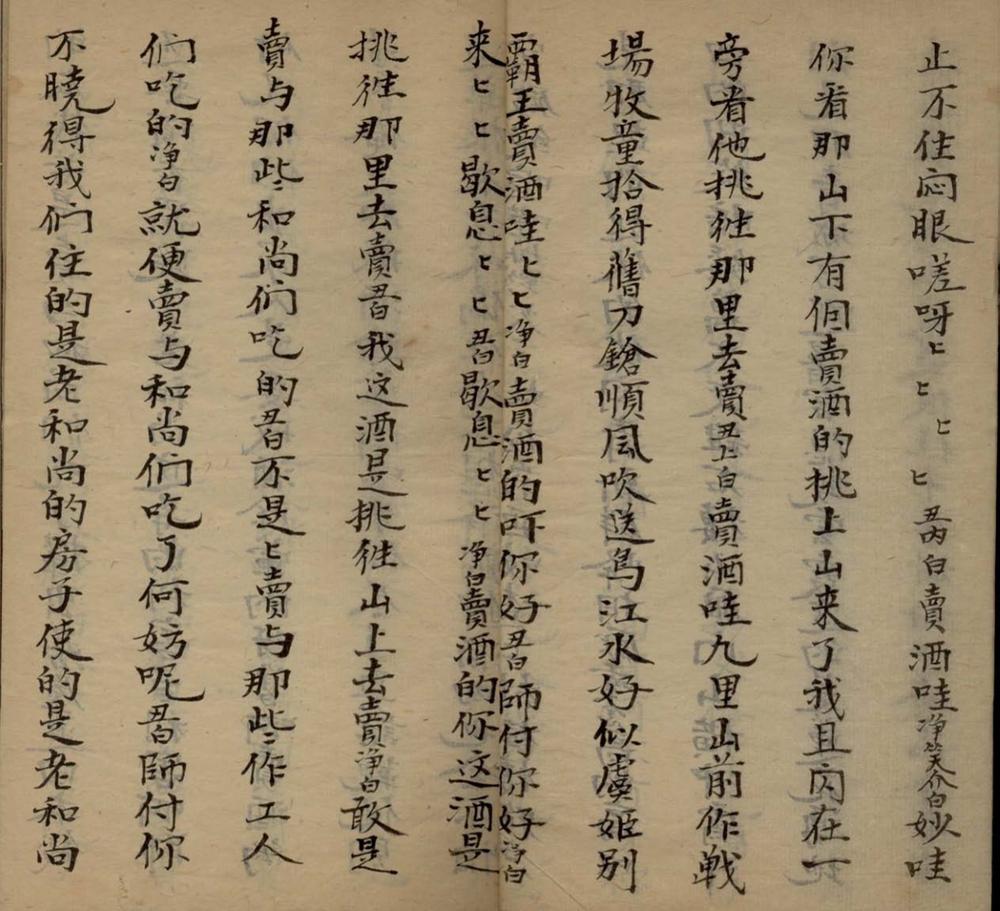 止不住闷眼嗟呀匕匕匕匕丑内白賣酒哇净笑介白妙哇
你看那山下有個賣酒的挑上山来了我且闪在一
旁看他挑徃那里去賣丑上白賣酒哇九里山前作戰
場牧童拾得舊刀鎗順風吹送烏江水好似虞姬别
霸王賣酒哇匕匕净白賣酒的吓你好丑白師付你好净白
来匕匕歇息匕匕丑白歇息匕匕净白賣酒的你这酒是
挑徃那里去賣丑白我这酒是挑徃山上去賣净白敢是
賣与那些和尚们吃的丑白不是匕賣与那些作工人
们吃的净白就便賣与和尚们吃了何妨呢丑白師付你
不曉得我们住的是老和尚的房子使的是老和尚